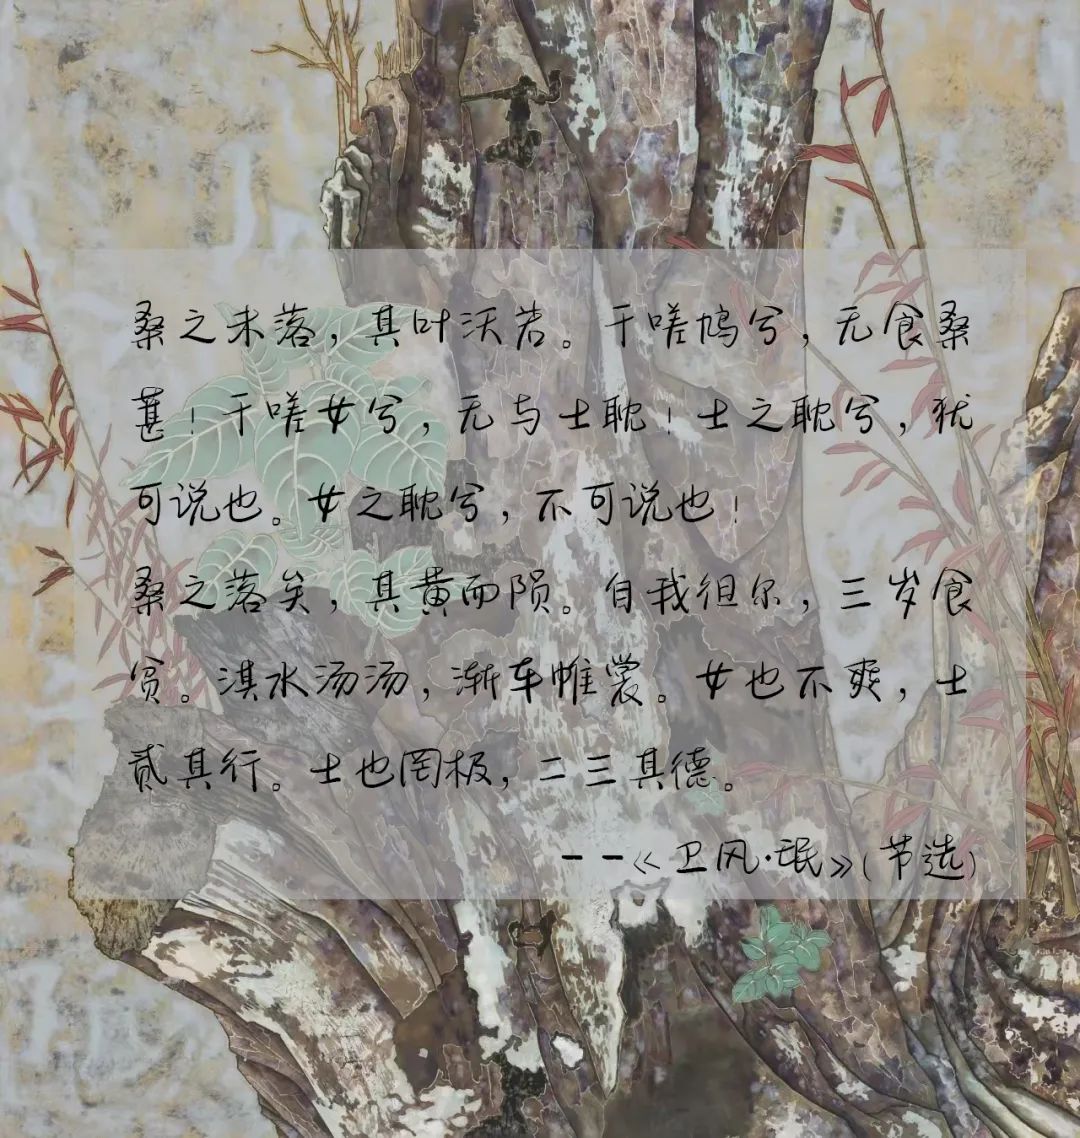 桑之未落，其叶沃若。于嗟鸠兮，无食桑
葚！于嗟女兮，无与士耽！士之耽兮，犹
可说也。女之耽兮，不可说也！
桑之落矣，其黄而陨。自我徂尔，三岁食
贫。淇水汤汤，渐车帷裳。女也不爽，士
贰其行。士也罔极，二三其德。
——《卫风·氓》（节选）